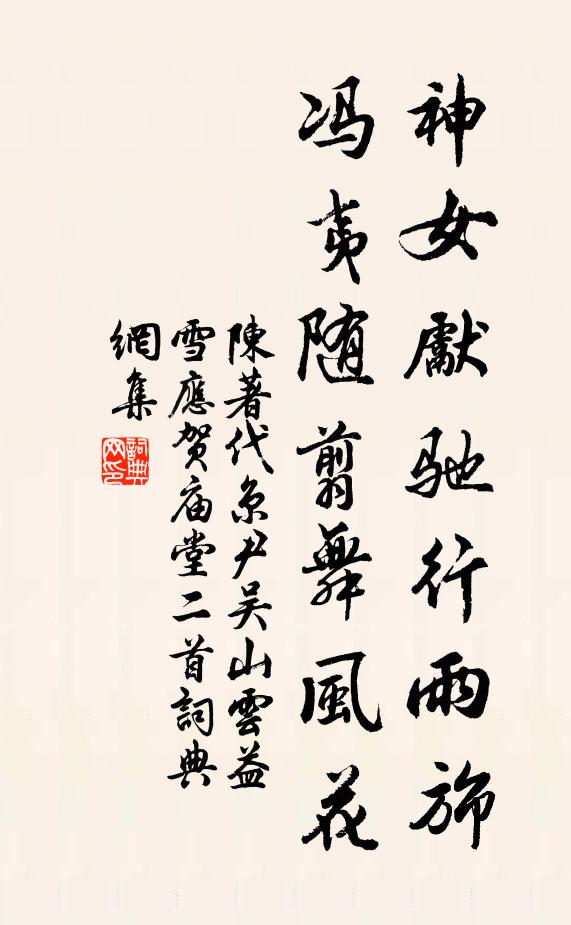 神女獻馳行雨旆
冯夷随翦舞風花
陳著代京尹吴山雲益
雪應贺庙堂二首詞典
網集
詞典网印